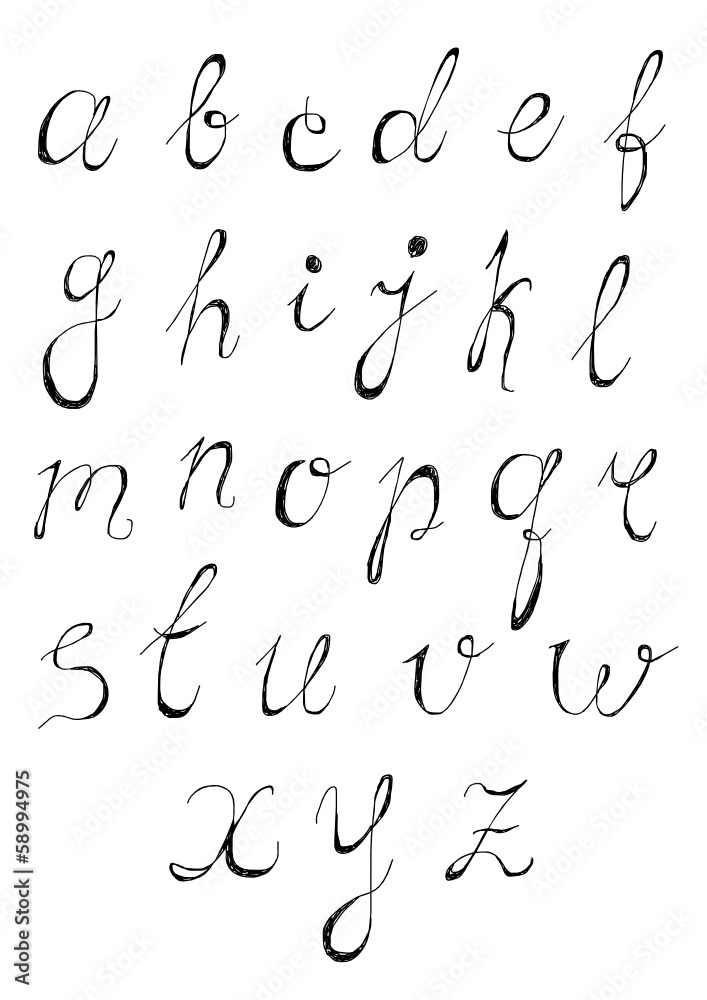 a b c d e f
g h i j k l
m n o p q r
s t u v w
x y z
Adobe Stock | #58994975